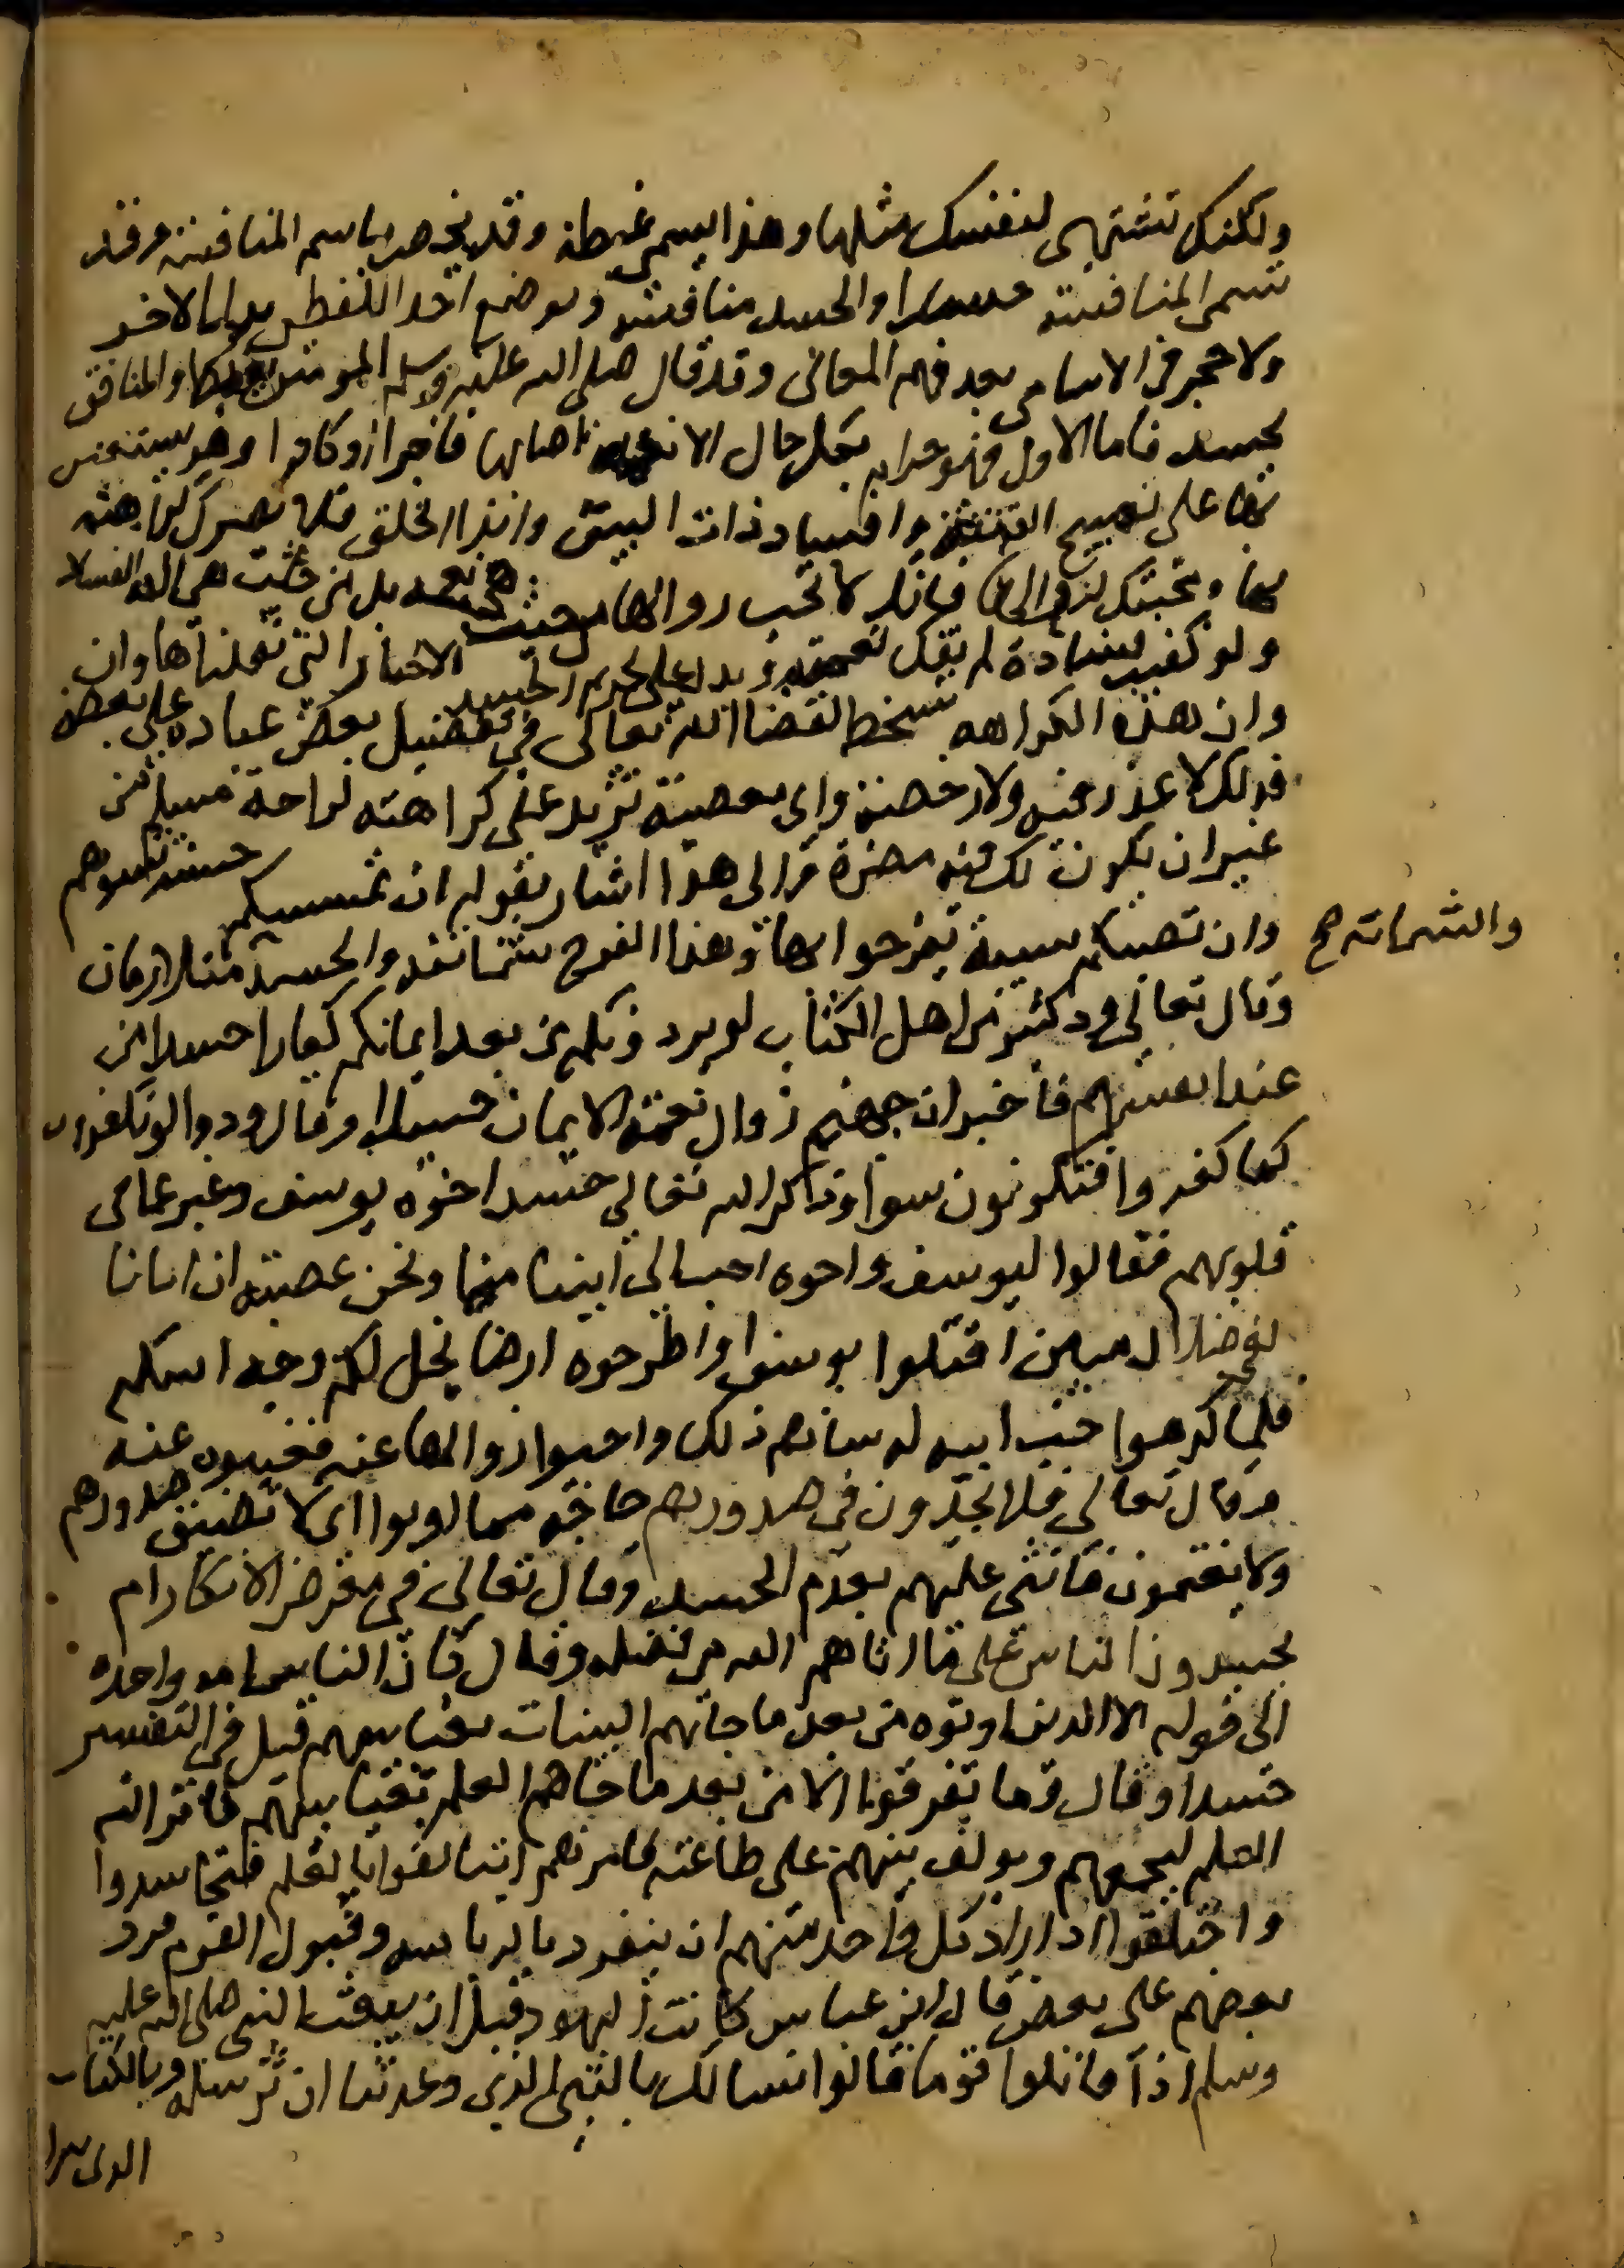 ولكنك تشتهي لنفسك مثلها وهذا يسمى غبطة وقد يخص باسم المنافسة وقد
تسمى المنافسة حسدا والحسد منافسة ويوضع احد اللفظين بدل الاخر
ولا حجر في الاسامي بعد فهم المعاني وقد قال صلى الله عليه وسلم المومن يغبط والمنافق
يحسد فاما الاول فهو حرام بكل حال الا نعمة اصابها فاجر او كافر وهو يستعين
بها على تهييج الفتنة وافساد ذات البين وايذا الخلق فلا يضرك كراهته
لها ومحبتك لزوالها فانك لا تحب زوالها من حيث هي نعمة بل من حيث هي الة الفساد
ولو كفيت فساده لم يغمك نعمته ويدل على تحريم الحسد الاخبار التي نقلناها وان
وان هذه الكراهه تسخط لقضا الله تعالى في تفضيل بعض عباده على بعض
فذلك لا عذر فيه ولا رخصة واي معصية تزيد على كراهته لراحة مسلم من
غير ان يكون لك منه مضرة والى هذا اشار بقوله ان تمسسكم حسنة تسوهم
وان تصبكم سيية يفرحوا بها وهذا الفرح شماتة والحسد والشماتة صح متلازمان
وقال تعالى ود كثير من اهل الكتاب لو يردونكم من بعد ايمانكم كفارا حسدا من
عند انفسهم فاخبر ان حبهم زوال نعمة الايمان حسدا وقال ودوا لو تكفرون
كما كفروا فتكونون سوا وذكر الله تعالى حسد اخوة يوسف وعبر عما في
قلوبهم فقالوا ليوسف واخوه احب الى ابينا منا ونحن عصبة ان ابانا
لفي ضلال مبين اقتلوا يوسف او اطرحوه ارضا يخل لكم وجه ابيكم
فلما كرهوا حب ابيه له ساهم ذلك واحبوا زوالها عنه فغيبوه عنه
وقال تعالى فلا يجدون في صدورهم حاجة مما اوتوا اي لا تضيق صدورهم
ولا يغتمون فاثنى عليهم بعدم الحسد وقال تعالى في معرض الانكار ام
يحسدون الناس على ما اتاهم الله من فضله وقال كان الناس امة واحدة
الى قوله الا الذين اوتوه من بعد ما جاتهم البينات بغيا بينهم قيل في التفسير
حسدا وقال وما تفرقوا الا من بعد ما جاهم العلم بغيا بينهم فانزل الله
العلم ليجمعهم ويولف بينهم على طاعته فامرهم ان يتالفوا بالعلم فتحاسدوا
واختلفوا اذ اراد كل واحد منهم ان ينفرد بالرياسة وقبول القوم فرد
بعضهم على بعض قال ابن عباس كانت اليهود قبل ان يبعث النبي صلى الله عليه
وسلم اذا قاتلوا قوما قالوا نسالك بالنبي الذي وعدتنا ان ترسله وبالكتاب
الذي